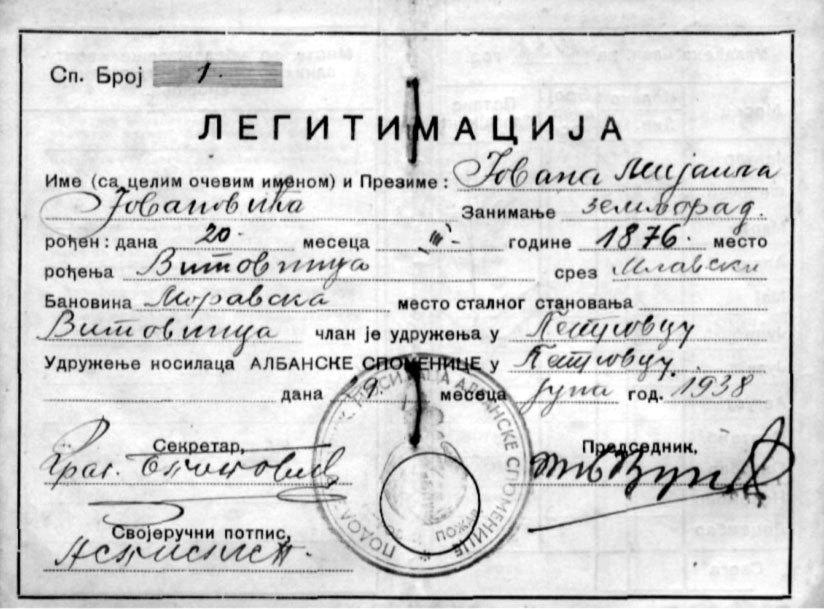 Сп. Број 1.
ЛЕГИТИМАЦИЈА
Име (са целим очевим именом) и Презиме: Јована Мијаила
Јовановића Занимање земљорад.
рођен: дана 20. месеца III године 1876. место
рођења Витовница срез Млавски
Бановина Моравска место сталног становања
Витовница члан је удружења у Петровцу
Удружење носилаца АЛБАНСКЕ СПОМЕНИЦЕ у Петровцу.
дана 19 месеца јула год. 1938
Секретар, Председник,
Својеручни потпис,
Неписмен.
НОСИЛАЦА АЛБАНСКЕ СПОМЕНИЦЕ